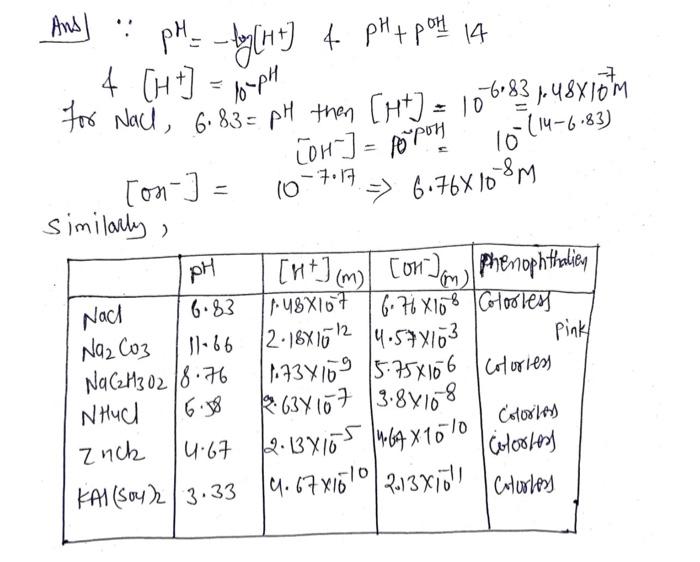 Ans] ∵ pH = -log[H+] & pH + pOH = 14
& [H+] = 10^-pH
For Nacl, 6.83 = pH then [H+] = 10^-6.83 = 1.48X10^-7 M
[OH-] = 10^-pOH = 10^-(14-6.83)
[OH-] = 10^-7.17 => 6.76X10^-8 M
Similarly,
pH [H+](m) [OH-](m) Phenophthalien
Nacl 6.83 1.48X10^-7 6.76X10^-8 Colorless
Na2CO3 11.66 2.18X10^-12 4.57X10^-3 Pink
NaC2H3O2 8.76 1.73X10^-9 5.75X10^-6 Colorless
NH4cl 6.58 2.63X10^-7 3.8X10^-8 Colorless
Zncl2 4.67 2.13X10^-5 4.64X10^-10 Colorless
KAl(SO4)2 3.33 4.67X10^-10 2.13X10^-11 Colorless